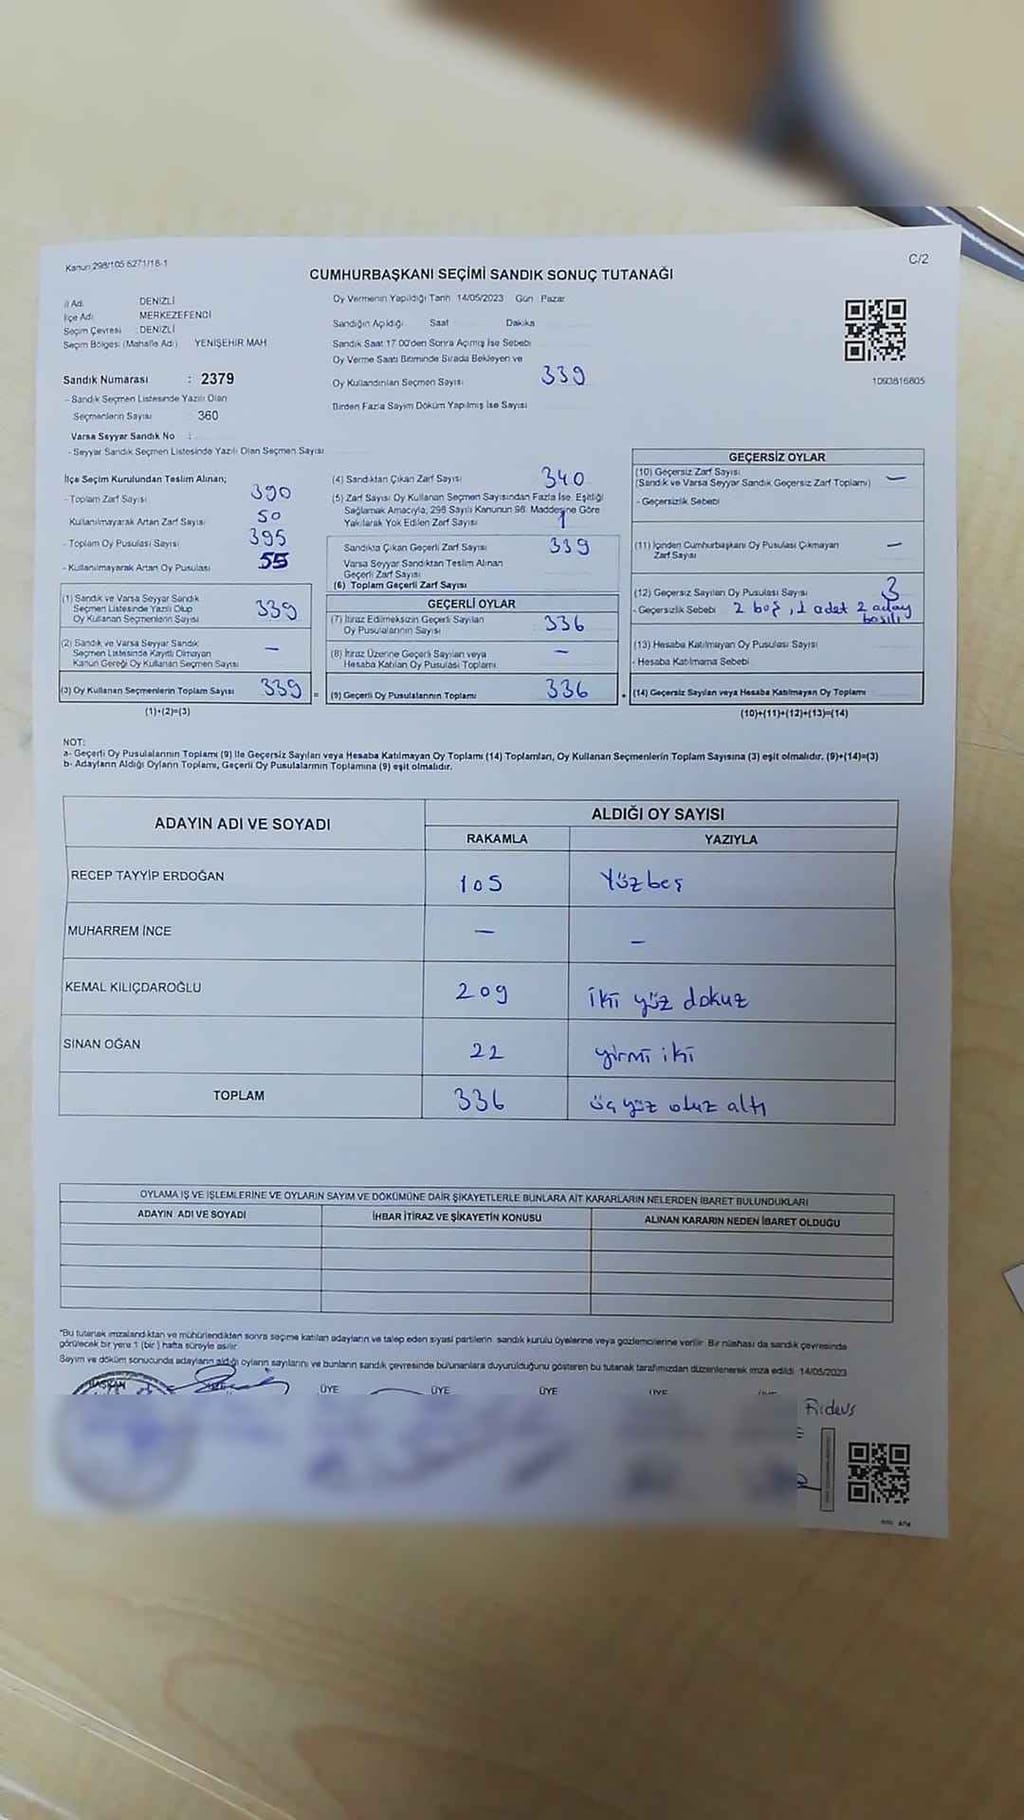 Kanun 298/105 6271/18-1
C/2
CUMHURBAŞKANI SEÇİMİ SANDIK SONUÇ TUTANAĞI
İl Adı DENİZLİ
İlçe Adı MERKEZEFENDİ
Seçim Çevresi : DENİZLİ
Seçim Bölgesi (Mahalle Adı) YENİŞEHİR MAH
Sandık Numarası : 2379
- Sandık Seçmen Listesinde Yazılı Olan
Seçmenlerin Sayısı 360
Varsa Seyyar Sandık No :
- Seyyar Sandık Seçmen Listesinde Yazılı Olan Seçmen Sayısı
Oy Vermenin Yapıldığı Tarih 14/05/2023 Gün Pazar
Sandığın Açıldığı Saat Dakika
Sandık Saat 17 00'den Sonra Açılmış İse Sebebi
Oy Verme Saati Bitiminde Sırada Bekleyen ve
Oy Kullandırılan Seçmen Sayısı 339
Birden Fazla Sayım Döküm Yapılmış İse Sayısı
1093816805
İlçe Seçim Kurulundan Teslim Alınan;
- Toplam Zarf Sayısı 390
Kullanılmayarak Artan Zarf Sayısı 50
- Toplam Oy Pusulası Sayısı 395
- Kullanılmayarak Artan Oy Pusulası 55
(1) Sandık ve Varsa Seyyar Sandık
Seçmen Listesinde Yazılı Olup
Oy Kullanan Seçmenlerin Sayısı 339
(2) Sandık ve Varsa Seyyar Sandık
Seçmen Listesinde Kayıtlı Olmayan
Kanun Gereği Oy Kullanan Seçmen Sayısı —
(3) Oy Kullanan Seçmenlerin Toplam Sayısı 339 =
(1)+(2)=(3)
(4) Sandıktan Çıkan Zarf Sayısı 340
(5) Zarf Sayısı Oy Kullanan Seçmen Sayısından Fazla İse, Eşitliği
Sağlamak Amacıyla, 298 Sayılı Kanunun 98. Maddesine Göre
Yakılarak Yok Edilen Zarf Sayısı 1
Sandıkta Çıkan Geçerli Zarf Sayısı 339
Varsa Seyyar Sandıktan Teslim Alınan
Geçerli Zarf Sayısı
(6) Toplam Geçerli Zarf Sayısı
GEÇERLİ OYLAR
(7) İtiraz Edilmeksizin Geçerli Sayılan
Oy Pusulalarının Sayısı 336
(8) İtiraz Üzerine Geçerli Sayılan veya
Hesaba Katılan Oy Pusulası Toplamı —
(9) Geçerli Oy Pusulalarının Toplamı 336 +
GEÇERSİZ OYLAR
(10) Geçersiz Zarf Sayısı
(Sandık ve Varsa Seyyar Sandık Geçersiz Zarf Toplamı) —
- Geçersizlik Sebebi
(11) İçinden Cumhurbaşkanı Oy Pusulası Çıkmayan
Zarf Sayısı —
(12) Geçersiz Sayılan Oy Pusulası Sayısı 3
- Geçersizlik Sebebi 2 boş, 1 adet 2 aday
basılı
(13) Hesaba Katılmayan Oy Pusulası Sayısı
- Hesaba Katılmama Sebebi
(14) Geçersiz Sayılan veya Hesaba Katılmayan Oy Toplamı
(10)+(11)+(12)+(13)=(14)
NOT:
a- Geçerli Oy Pusulalarının Toplamı (9) ile Geçersiz Sayılan veya Hesaba Katılmayan Oy Toplamı (14) Toplamları, Oy Kullanan Seçmenlerin Toplam Sayısına (3) eşit olmalıdır. (9)+(14)=(3)
b- Adayların Aldığı Oyların Toplamı, Geçerli Oy Pusulalarının Toplamına (9) eşit olmalıdır.
ADAYIN ADI VE SOYADI ALDIĞI OY SAYISI
RAKAMLA YAZIYLA
RECEP TAYYİP ERDOĞAN 105 Yüzbeş
MUHARREM İNCE — —
KEMAL KILIÇDAROĞLU 209 iki yüz dokuz
SİNAN OĞAN 22 yirmi iki
TOPLAM 336 üç yüz otuz altı
OYLAMA İŞ VE İŞLEMLERİNE VE OYLARIN SAYIM VE DÖKÜMÜNE DAİR ŞİKAYETLERLE BUNLARA AİT KARARLARIN NELERDEN İBARET BULUNDUKLARI
ADAYIN ADI VE SOYADI İHBAR İTİRAZ VE ŞİKAYETİN KONUSU ALINAN KARARIN NEDEN İBARET OLDUĞU
"Bu tutanak imzalandıktan ve mühürlendikten sonra seçime katılan adayların ve talep eden siyasi partilerin sandık kurulu üyelerine veya gözlemcilerine verilir Bir nüshası da sandık çevresinde
görülecek bir yere 1 (bir) hafta süreyle asılır
Sayım ve döküm sonucunda adayların aldığı oyların sayılarını ve bunların sandık çevresinde bulunanlara duyurulduğunu gösteren bu tutanak tarafımızdan düzenlenerek imza edildi 14/05/2023
BAŞKAN ÜYE ÜYE ÜYE ÜYE